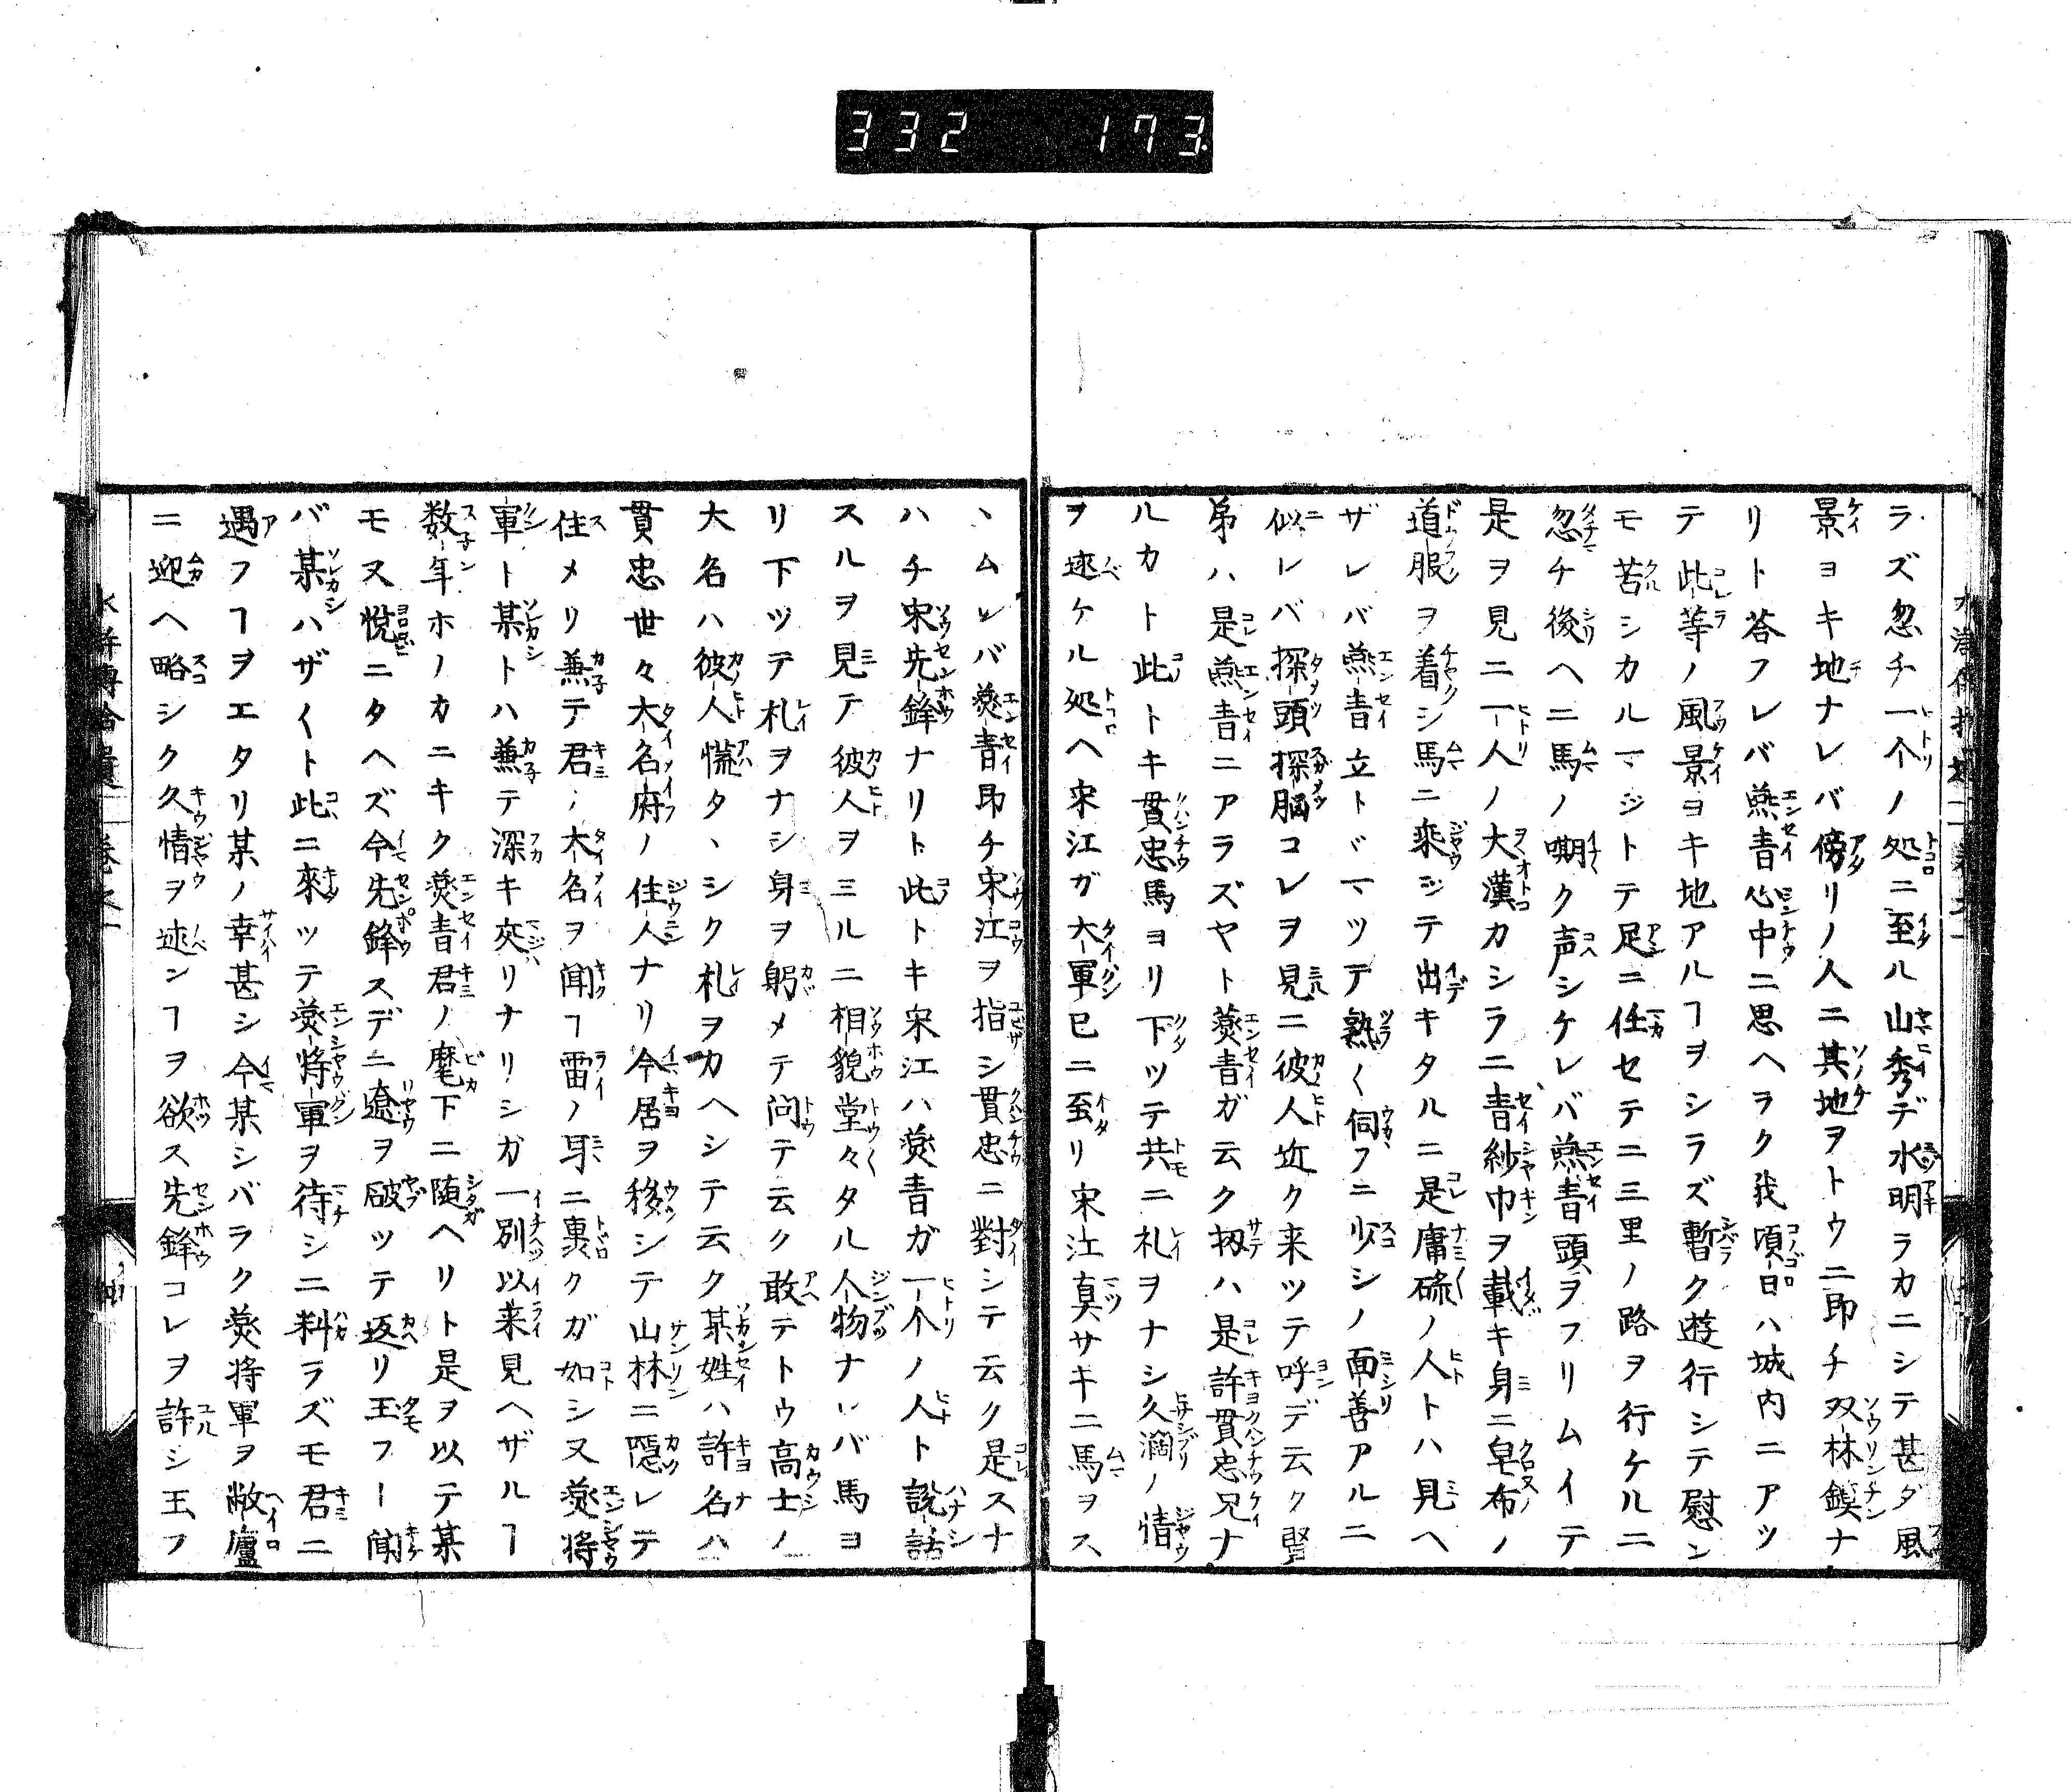 332 173
ラズ忽チ一个ノ処ニ至ル山秀デ水明ラカニシテ甚ダ風
景ヨキ地ナレバ傍リノ人ニ其地ヲトウニ即チ双林鎮ナ
リト答フレバ燕青心中ニ思ヘラク我頃日ハ城内ニアツ
テ此等ノ風景ヨキ地アルヿヲシラズ暫ク遊行シテ慰ン
モ苦シカルマジトテ足ニ任セテ二三里ノ路ヲ行ケルニ
忽チ後ヘニ馬ノ嘶ク声シケレバ燕青頭ヲフリムイテ
是ヲ見ニ一人ノ大漢カシラニ青紗巾ヲ載キ身ニ皂布ノ
道服ヲ着シ馬ニ乗ジテ出キタルニ是庸碌ノ人トハ見ヘ
ザレバ燕青立トヾマツテ熟〱伺フニ少シノ面善アルニ
似レバ探頭探脳コレヲ見ニ彼人近ク来ツテ呼デ云ク賢
弟ハ是燕青ニアラズヤト燕青ガ云ク扨ハ是許貫忠兄ナ
ルカト此トキ貫忠馬ヨリ下ツテ共ニ礼ヲナシ久濶ノ情
ヲ逑ケル処ヘ宋江ガ大軍已ニ至リ宋江真サキニ馬ヲス
ヽムレバ燕青即チ宋江ヲ指シ貫忠ニ對シテ云ク是スナ
ハチ宋先鋒ナリト此トキ宋江ハ燕青ガ一个ノ人ト説話
スルヲ見テ彼人ヲミルニ相貌堂々タル人物ナレバ馬ヨ
リ下ツテ札ヲナシ身ヲ躬メテ问テ云ク敢テトウ高士ノ
大名ハ彼人慌タヽシク札ヲカヘシテ云ク某姓ハ許名ハ
貫忠世々大名府ノ住人ナリ今居ヲ移シテ山林ニ隠レテ
住メリ兼テ君ノ大名ヲ聞ヿ雷ノ耳ニ裏クガ如シ又燕将
軍ト某トハ兼テ深キ交リナリシガ一別以来見ヘザルヿ
数年ホノカニキク燕青君ノ麾下ニ随ヘリト是ヲ以テ某
モ又悦ニタヘズ今先鋒スデニ遼ヲ破ツテ返リ玉フー聞
バ某ハザ〱ト此ニ來ツテ燕将軍ヲ待シニ料ラズモ君ニ
遇フヿヲエタリ某ノ幸甚シ今某シバラク燕将軍ヲ敝廬
ニ迎ヘ略シク久情ヲ逑ンヿヲ欲ス先鋒コレヲ許シ玉フ